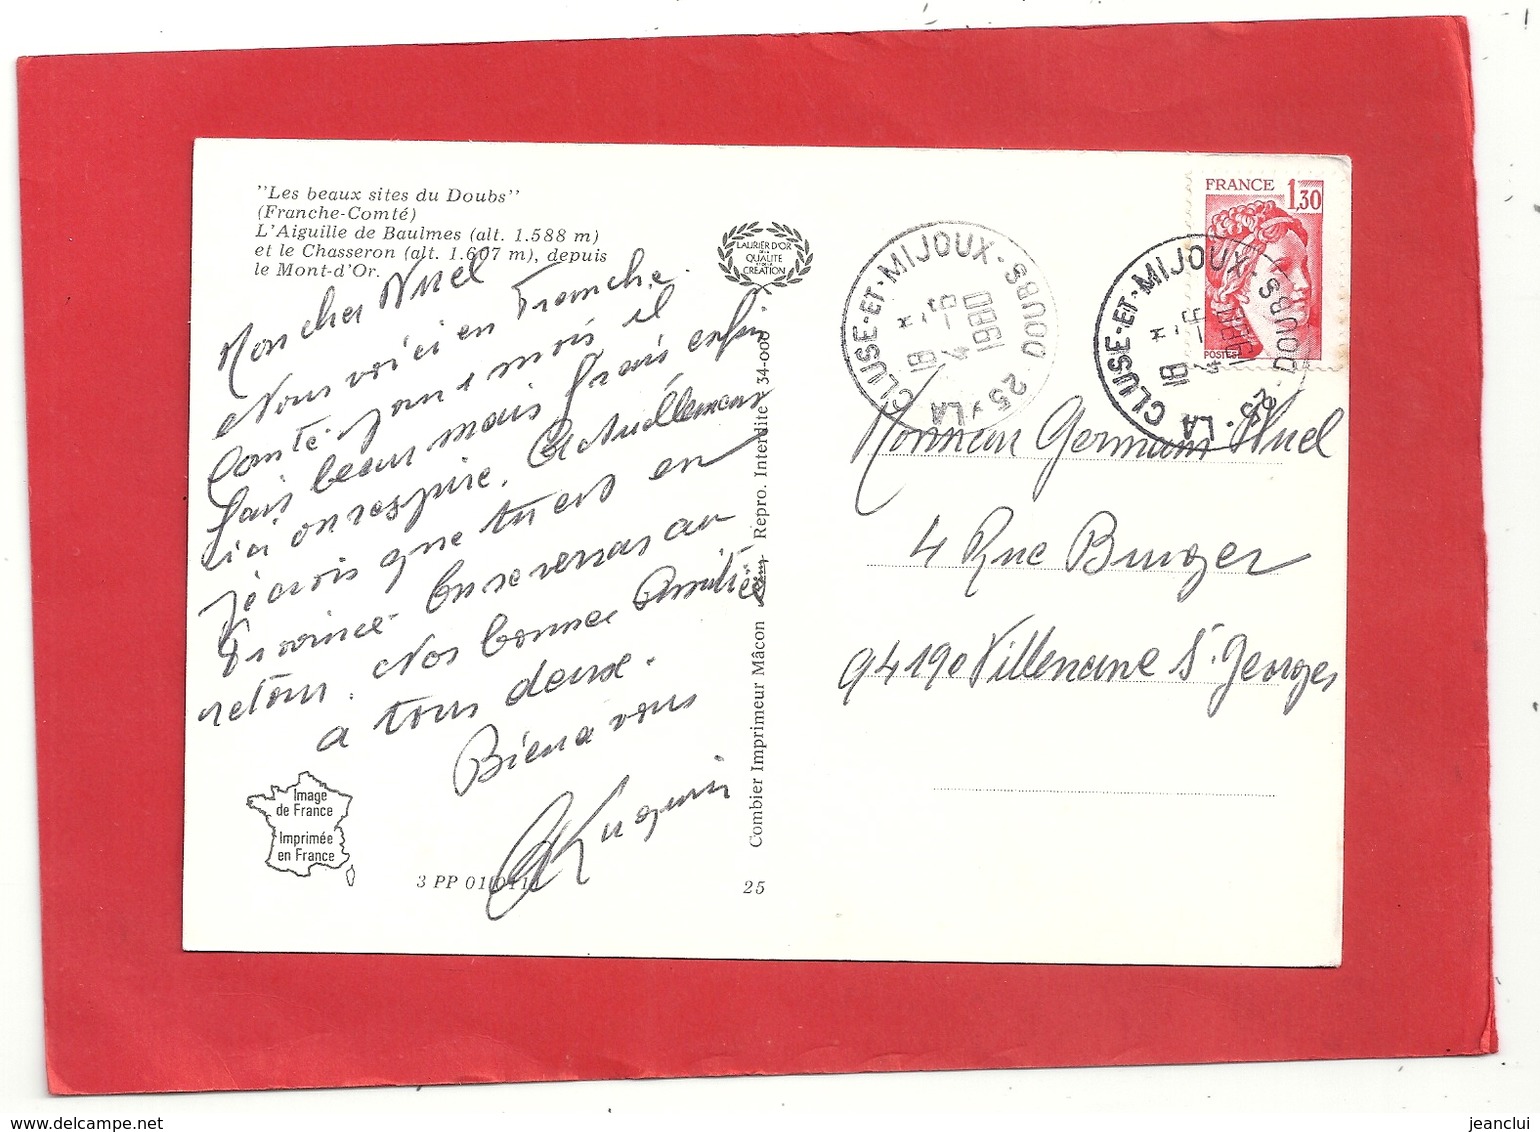 "Les beaux sites du Doubs"
(Franche-Comté)
L'Aiguille de Baulmes (alt. 1.588 m)
et le Chasseron (alt. 1.607 m), depuis
le Mont-d'Or.
Mon cher Nuel
Nous voici en Franche
Comté pour 1 mois il
fait beau mais frais enfin
ici on respire. Actuellement
je crois que tu es en
Province. On se verras au
retour. Nos bonnes Amitiés
a tous deux.
Bien a vous
Image
de France
Imprimée
en France
3 PP 01
25
LAURIER D'OR
DE LA
QUALITE
ET DE LA
CREATION
Combier Imprimeur Mâcon
Repro. Interdite
34-000
25 - LA CLUSE-ET-MIJOUX - DOUBS
18 H
5-
4
1980
25 - LA CLUSE-ET-MIJOUX - DOUBS
18 H
5-
4
1980
FRANCE 1,30
POSTES
Monsieur Germain Nuel
4 Rue Burger
94190 Villeneuve St. Georges
jeanclui